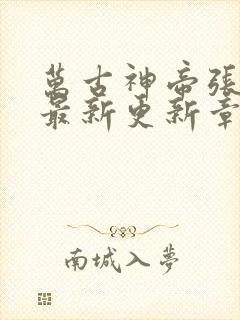 萬古神帝張
最新更新章
南城入夢